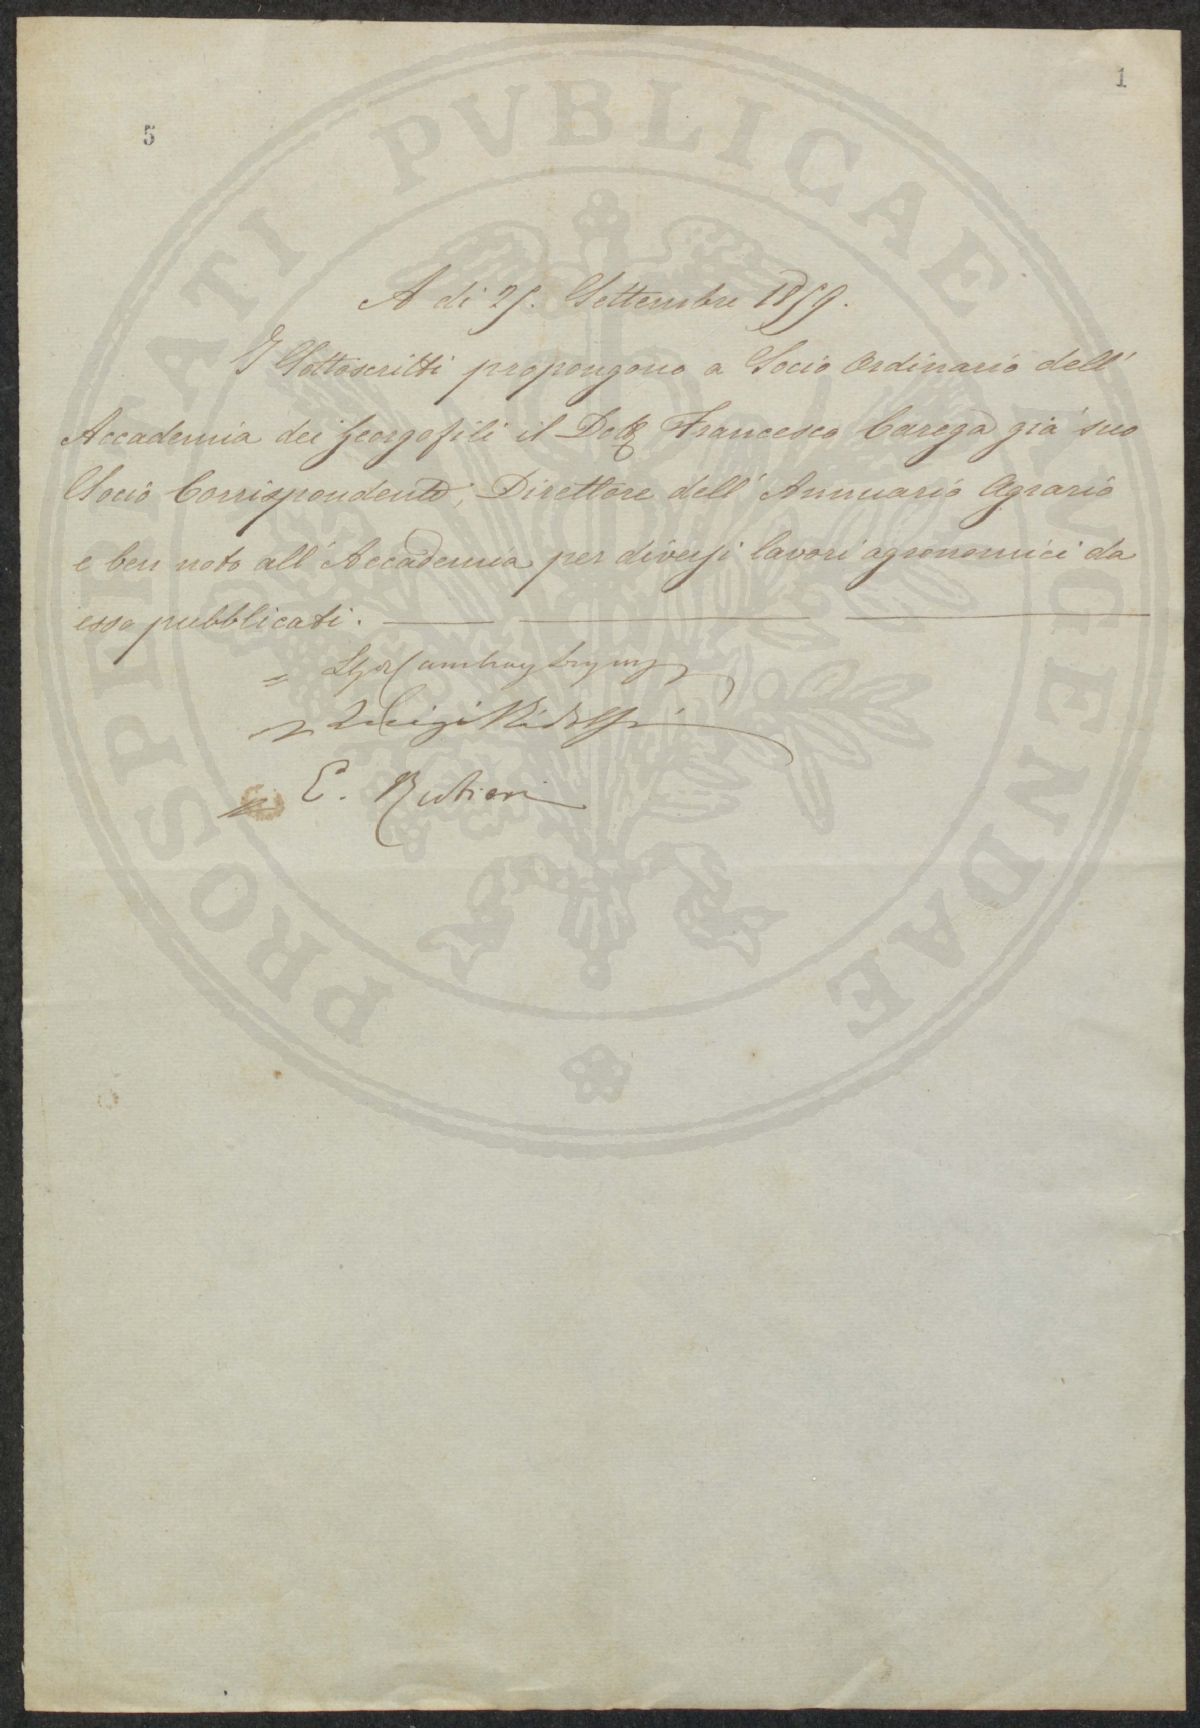 1
5
A dì 25. Settembre 1859.
I Sottoscritti propongono a Socio Ordinario dell'
Accademia dei Georgofili il Dott. Francesco Carega già suo
Socio Corrispondente, Direttore dell' Annuario Agrario
e ben noto all' Accademia per diversi lavori agronomici da
esso pubblicati.
Cambray Digny
Luigi Ridolfi
E. Rubieri
PROSPERITATI PVBLICAE AVGENDAE